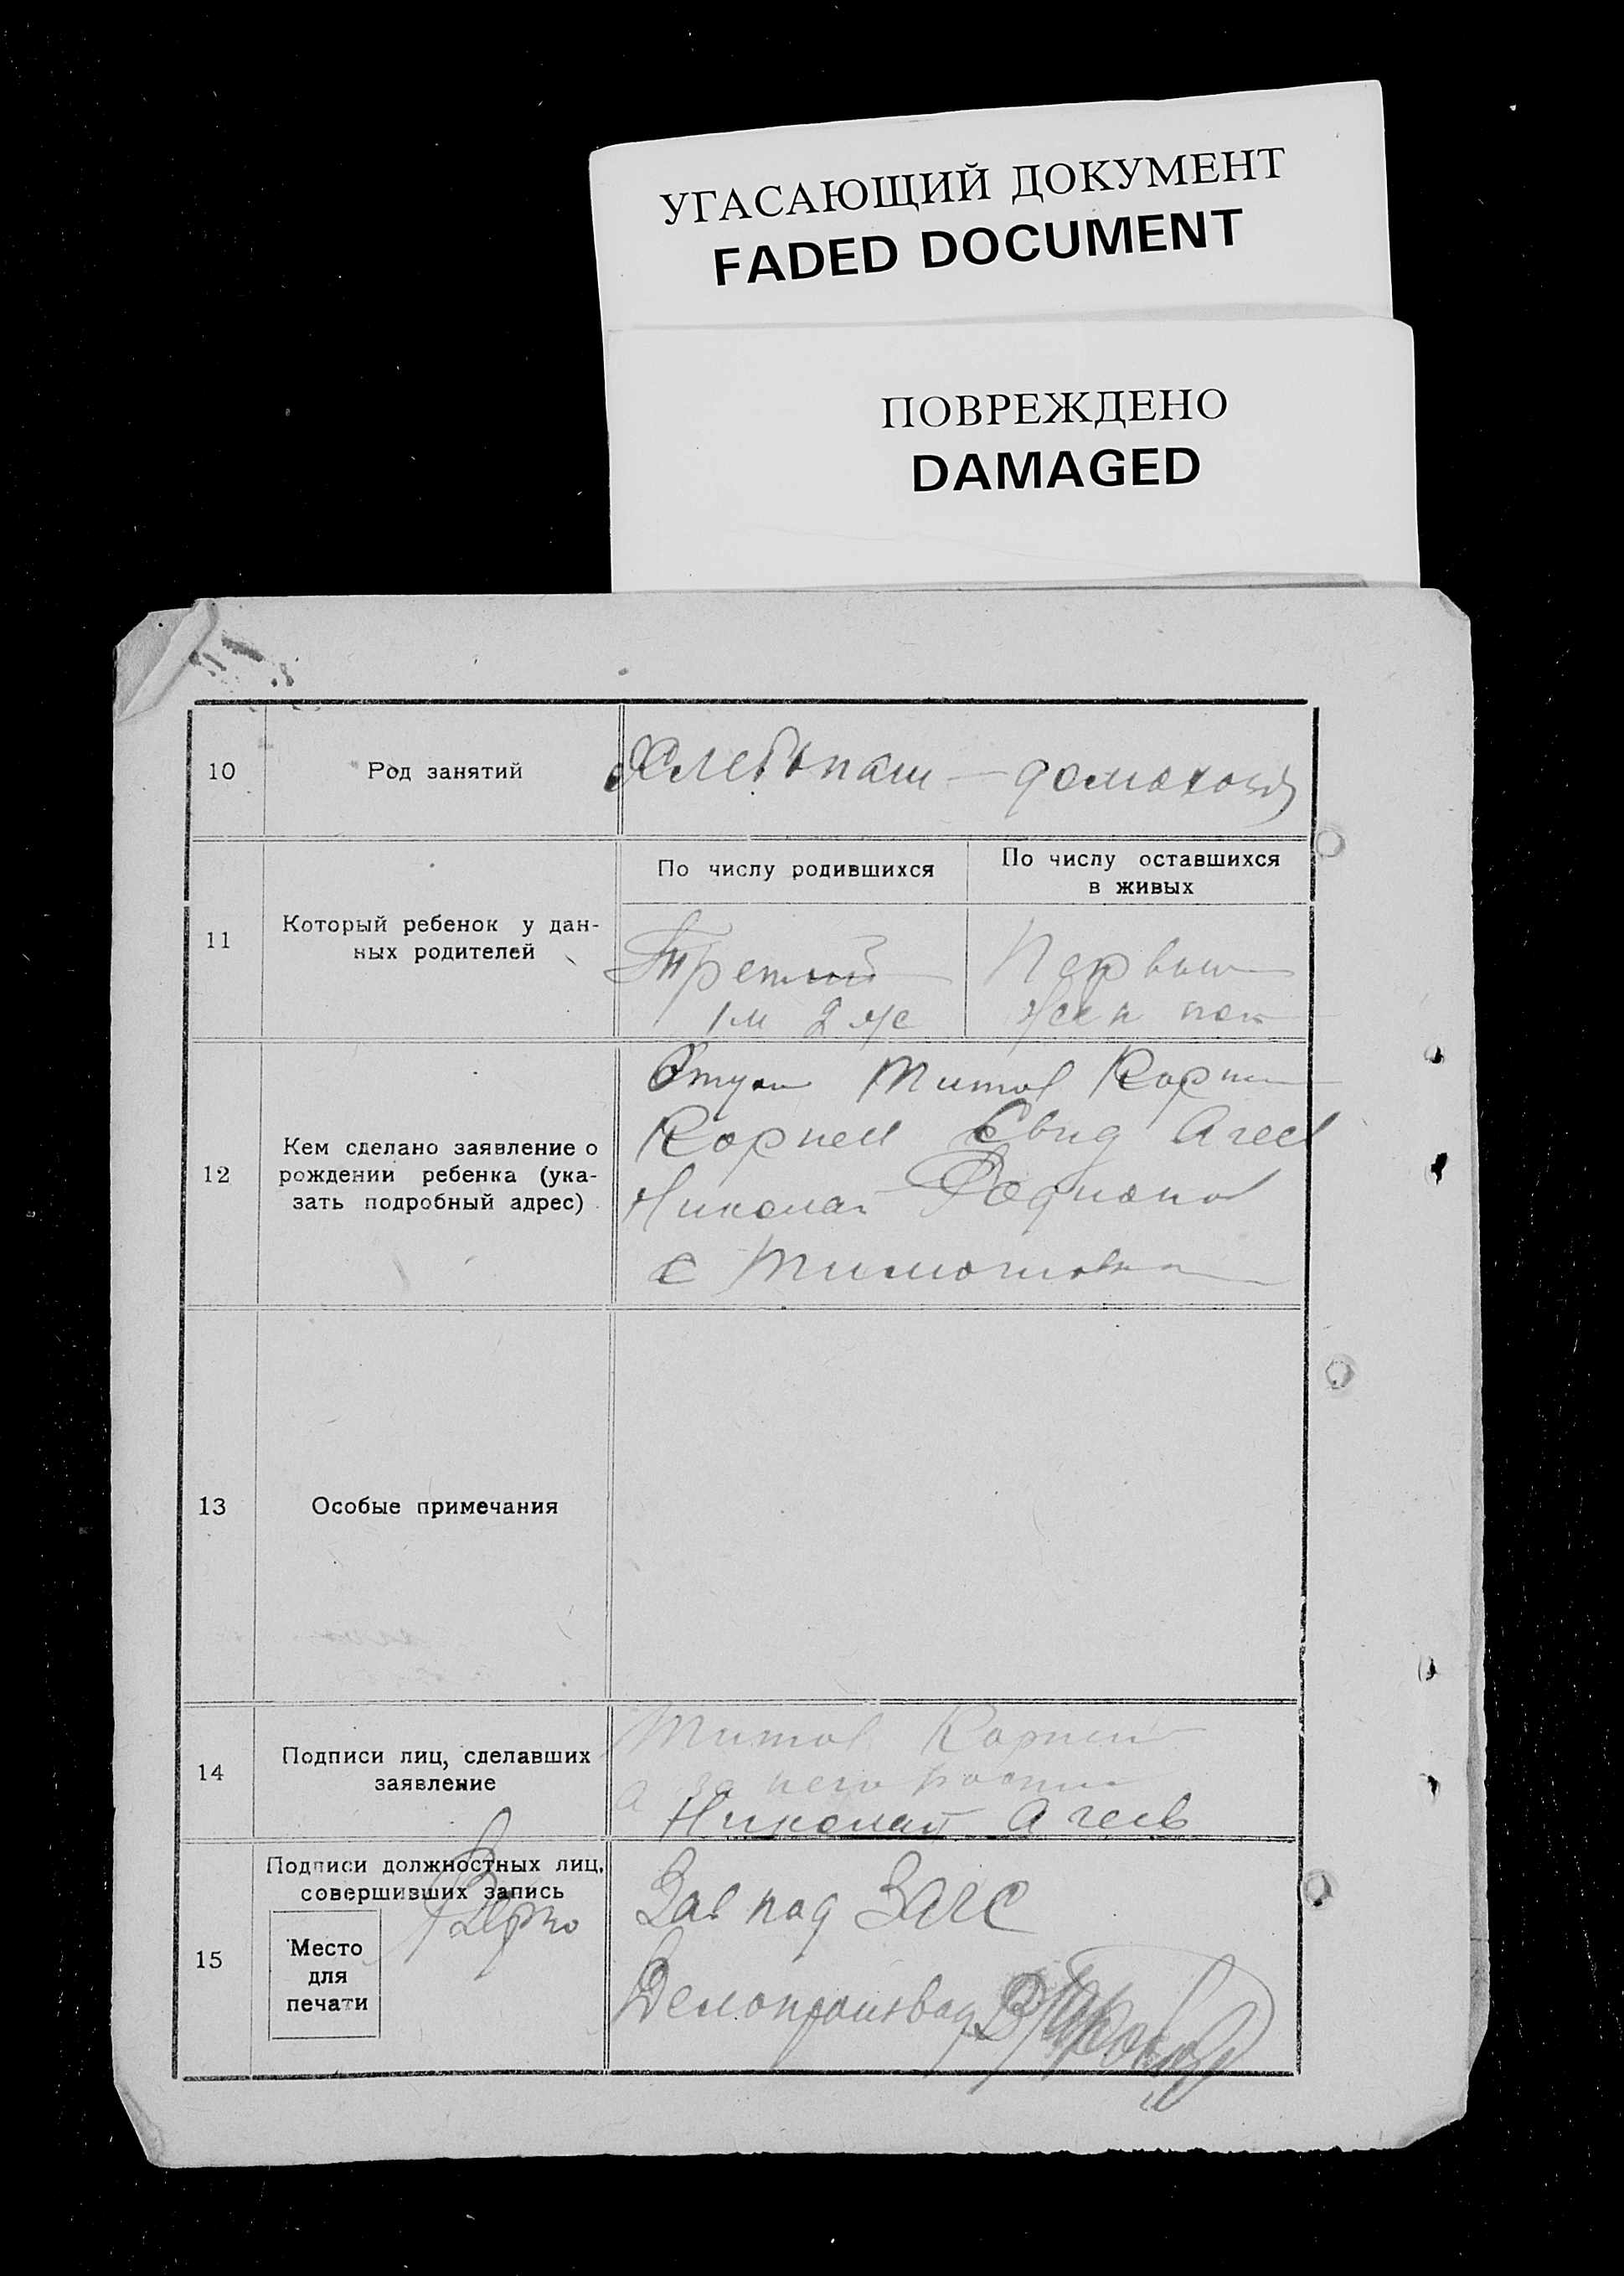 УГАСАЮЩИЙ ДОКУМЕНТ
FADED DOCUMENT
ПОВРЕЖДЕНО
DAMAGED
10
Род занятий
Хлебопаш — домохоз
11
Который ребенок у дан-
ных родителей
По числу родившихся
По числу оставшихся
в живых
Третий
1 м 2 ж
Первый
жен пол
12
Кем сделано заявление о
рождении ребенка (ука-
зать подробный адрес)
Отцом Титов Корни
Корней Свид Агеев
Николай Родионов
с Тимошовка
13
Особые примечания
14
Подписи лиц, сделавших
заявление
Титов Корней
а за него распис
Николай Агеев
15
Подписи должностных лиц,
совершивших запись
Верно
Место
для
печати
Зав под ЗАГС
Делопроизвод